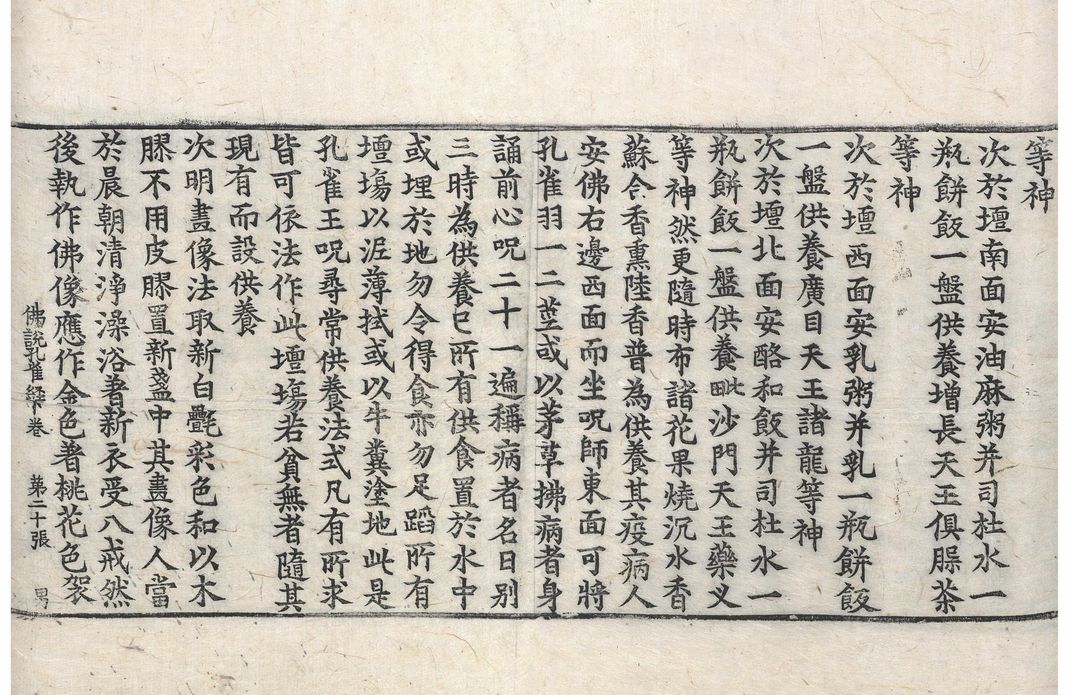 等神
次於壇南面安油麻粥并司杜水一
瓶餅飯一盤供養增長天王俱腂茶
等神
次於壇西面安乳粥并乳一瓶餅飯
一盤供養廣目天王諸龍等神
次於壇北面安酪和飯并司杜水一
瓶餅飯一盤供養毗沙門天王藥义
等神然更隨時布諸花果燒沉水香
蘇合香熏陸香普為供養其疫病人
安佛右邊西面而坐呪師東面可將
孔雀羽一二莖或以茅草拂病者身
誦前心呪二十一遍稱病者名日別
三時為供養已所有供食置於水中
或埋於地勿令得食亦勿足蹈所有
壇場以泥薄拭或以牛糞塗地此是
孔雀王呪尋常供養法式凡有所求
皆可依法作此壇場若貧無者隨其
現有而設供養
次明畫像法取新白㲲彩色和以木
膠不用皮膠置新盞中其畫像人當
於晨朝清淨澡浴著新衣受八戒然
後執作佛像應作金色著桃花色袈
佛說孔雀経下卷 苐二十張 男